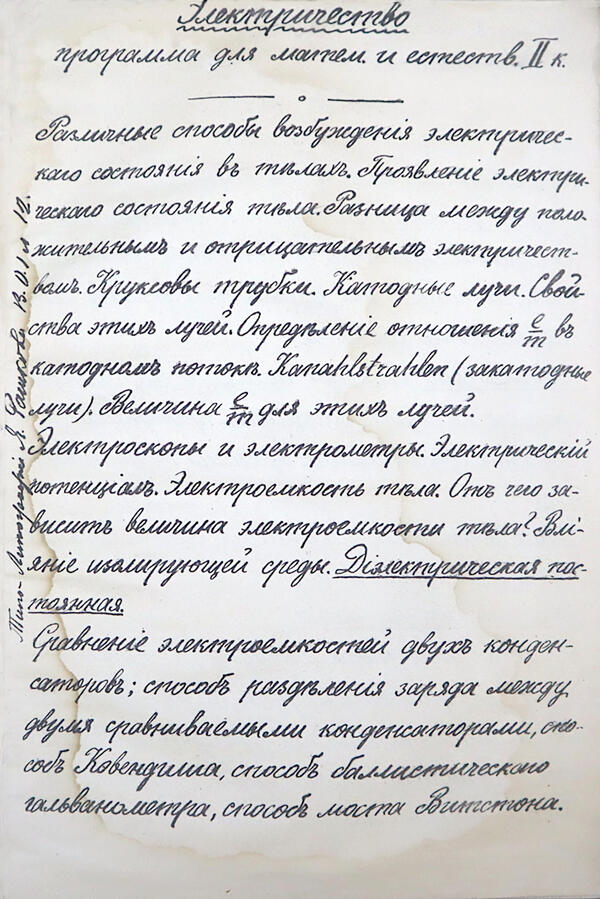 Электричество
программа для матем. и естеств. II к.
Различные способы возбужденія электриче-
скаго состоянія въ тѣлахъ. Проявленіе электри-
ческаго состоянія тѣла. Разница между поло-
жительнымъ и отрицательнымъ электричест-
вомъ. Круксовы трубки. Катодные лучи. Свой-
ства этихъ лучей. Опредѣленіе отношенія e/m въ
катодномъ потокѣ. Kanahlstrahlen (закатодные
лучи). Величина e/m для этихъ лучей.
Электроскопы и электрометры. Электрическій
потенціалъ. Электроемкость тѣла. Отъ чего за-
виситъ величина электроемкости тѣла? Влі-
яніе изолирующей среды. Діэлектрическая пос-
тоянная.
Сравненіе электроемкостей двухъ конден-
саторовъ; способъ раздѣленія заряда между
двумя сравниваемыми конденсаторами, спо-
собъ Кавендиша, способъ баллистическаго
гальванометра, способъ моста Витстона.
Типо-Литографія Я.